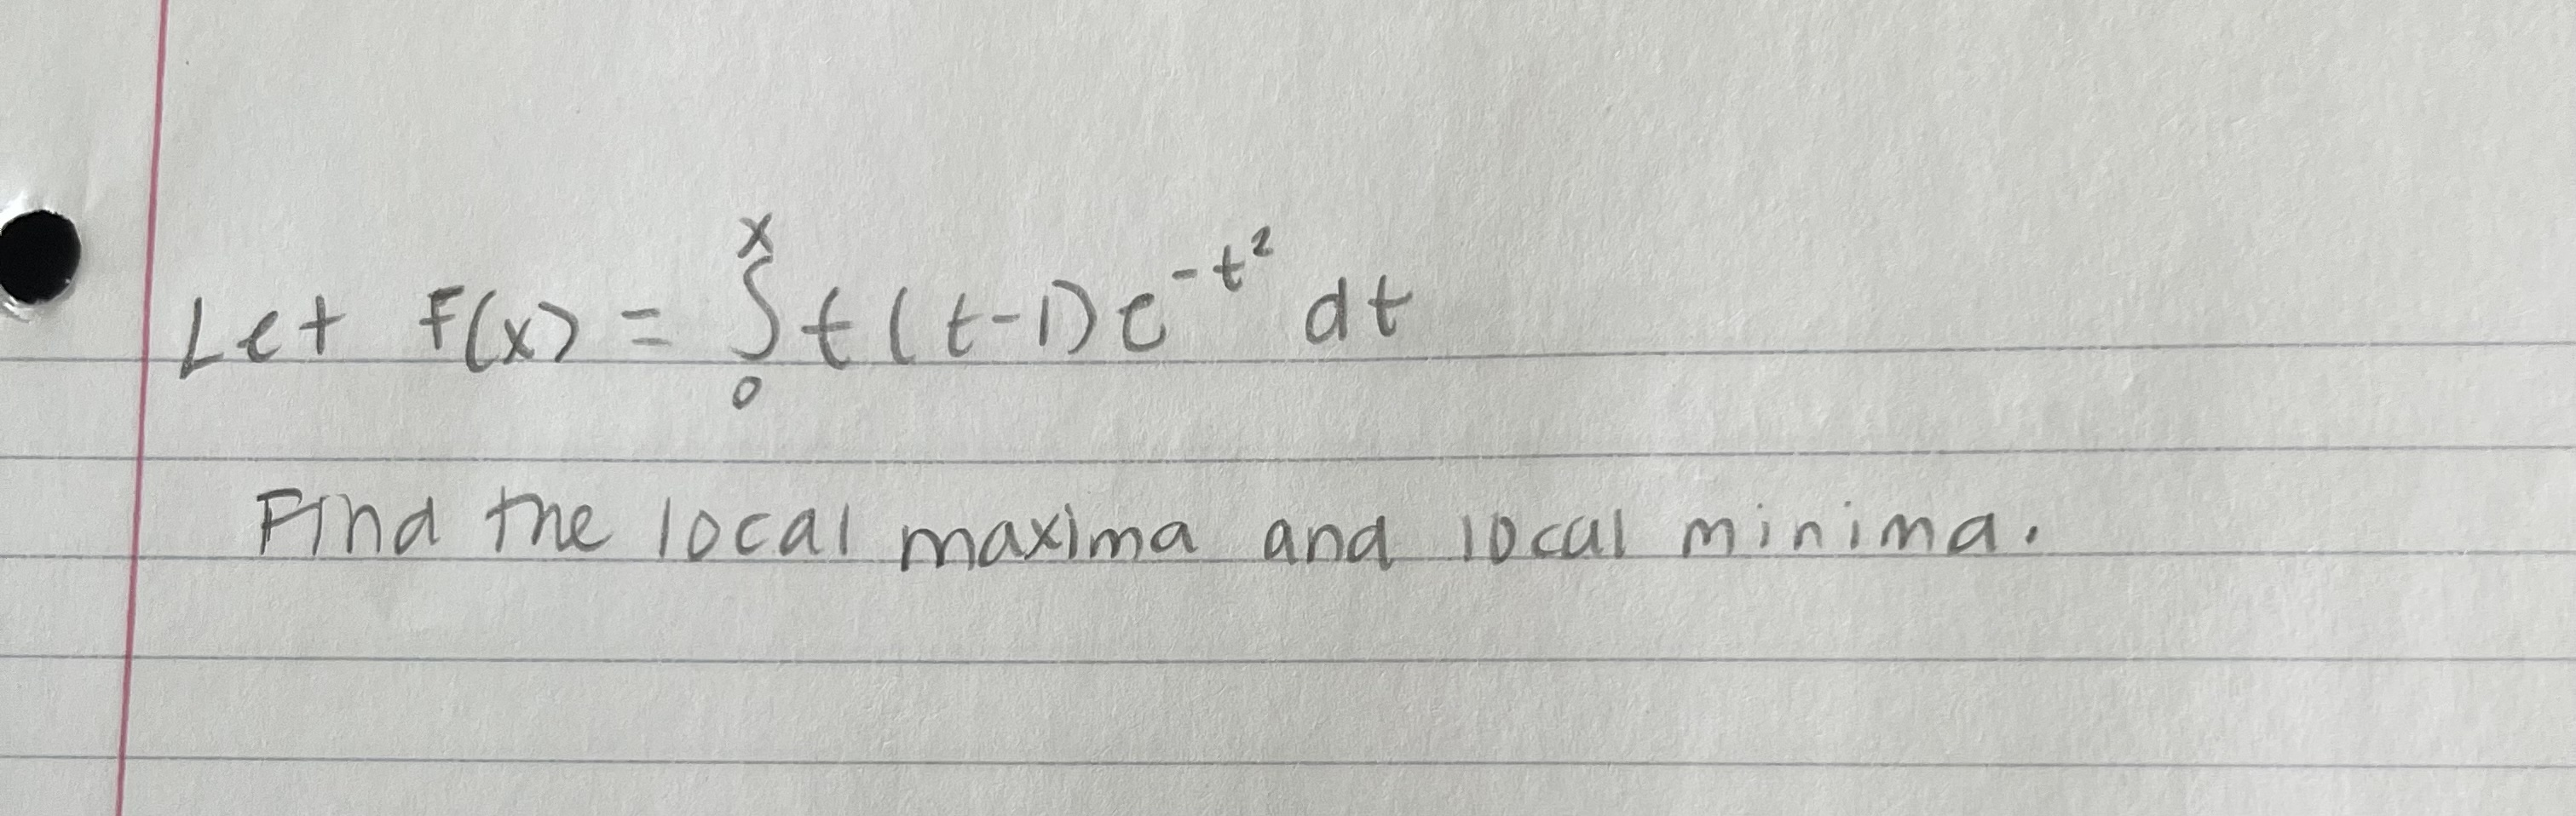 Let F(x) = ∫₀ˣ t(t-1)e^{-t²} dt
Find the local maxima and local minima.